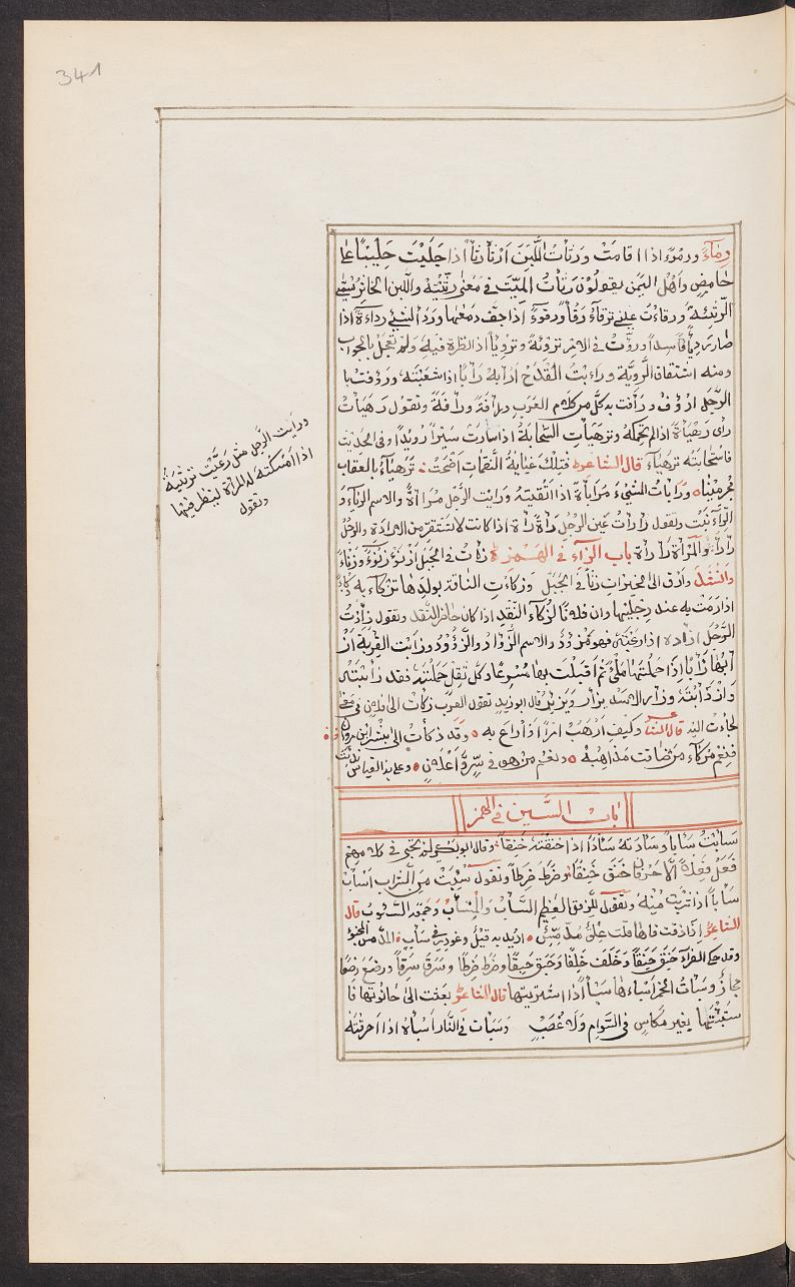 341
ورمأ ورموًّا اذا اقامت ورثأت اللبن ارثأ رثأً اذا حلبت حليبًا على
حامض واهل اليمن يقولون رثأت الميت فى معنى رثيته واللبن الخاثر يسمى
الرثيئة ورقاءت عينه ترقاءُ رقأً ورقوءً اذا جف دمعها وردأ الشئ رداءة اذا
صار رديًّا فاسداً وروّت فى الامر تروئة وتروياً اذا نظرة فيه ولم تعجل بالجواب
ومنه اشتقاق الروية وراءبت القدح ارابه رأباً اذا شعبته ورؤفت با
الرجل ارؤف ورأفت به كل من كلام العرب رأفة ورآفة وتقول رهيأت
رأى رهيأة اذا لم تحكمه وترهيأت السحابة اذا سارت سيراً رويدًا وفى الحديث
فاسحابته ترهيأء قال الشاعر فتلك عيابة النقمات اضحت ترهيأء بالعقاب
لمجرميها ورايأت الشئ مرايأة اذا اتقيته ورايت الرجل مراآة والاسم الريآء و
الرآء وتقول رأرأت عين الرجل رأرأة اذا كانت لا تستقر من الادارة والرجل
رأرأ والمرأة رأرأة باب الزاء فى الهمز زنأت فى الجبل ازنؤ زنوءً وزنأً
وزكاءت الناقة بولدها تزكاء به زكاءً
اذا رمت به عند رجليها وان فلانًا لزكاء النقد اذا كان حاضر النقد وتقول زأدت
الرجل ازاده اذا رعبته فهو مزؤد والاسم الزؤاد والزؤود وزابت القربة از
أبها زأباً اذا حملتها ثم اقبلت بها مسرعًا وكل ثقل حملته فقد زأبته
وازدأبته وزأر الاسد يزأر ويزئر قال ابو زيد تقول العرب زكأت الى فلان فى معنى
لجاءت اليه قال الشاعر وكيف ارهب امراً اذ اراع به وقد زكأت الى بشر ابن مروان
فنعم مزكاء من ضاقت مذاهبه ونعم من هو فى سر واعلان
باب السين فى الهمز
سأبت سأباً وسأدته سأدًا اذا خنقته خنقاً وقال ابو بكر لم يجى فى كلامهم
فعل فعلاً الا حرفان خنق خنقًا وضرط ضرطاً وتقول سئبت من الشراب اسأب
سأباً اذا شربت منه وتقول للزق العظيم السأب والمسأب وجمعه السئوب قال
الشاعر اذا ذقت فاها قلت علق مدمس اريد به قيل وغودر فى سأب
وقد حكى الفرآء خنق خنقاً وحلف حلفا وحبق حبقًا وضرط ضرطًا وسرق سرقاً ورضع رضعًا
مجاز وسبأت الخمر اسباءها سبأً اذا اشتريتها قال الشاعر بعثت الى حانوتها فا
ستبئتها بغير مكاس فى السوام ولا غصب وسبأت فى النار اسبأه اذا احرقته
ورايت الرجل مثل رعيت ترئية
اذا امسكت له المرآة لينظر فيها
وتقول